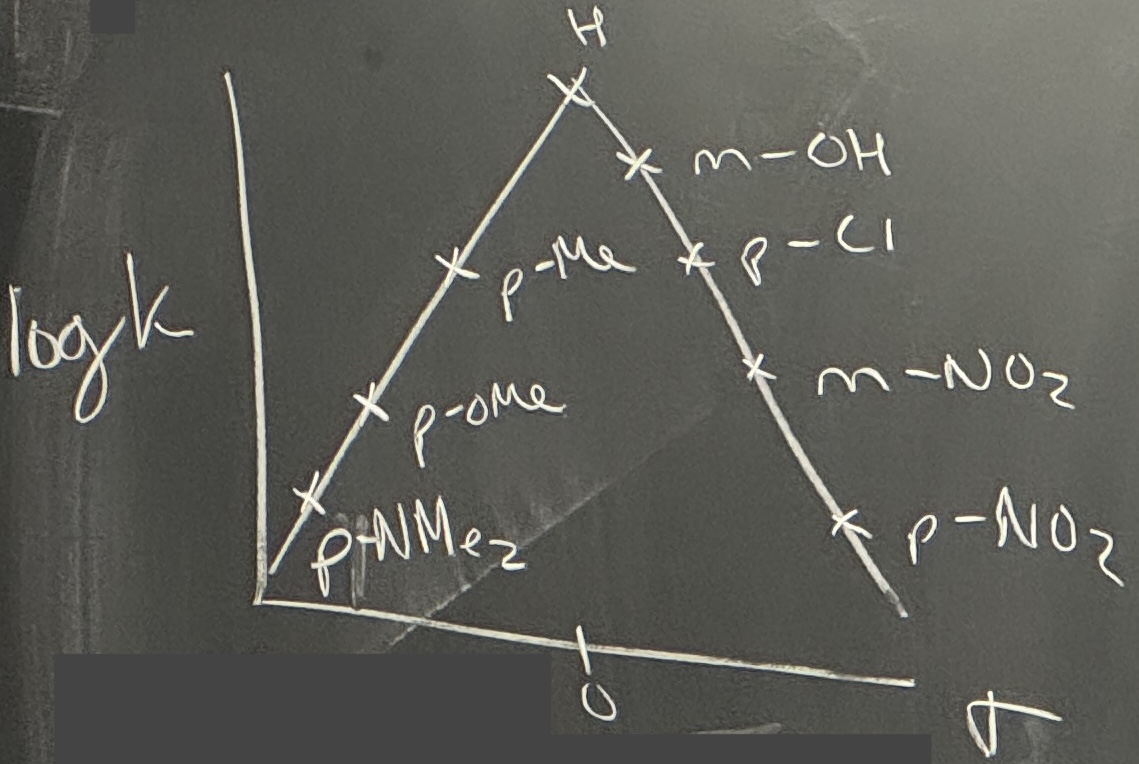 H
m-OH
p-Cl
p-Me
log k
m-NO2
p-OMe
p-NMe2
p-NO2
0
σ